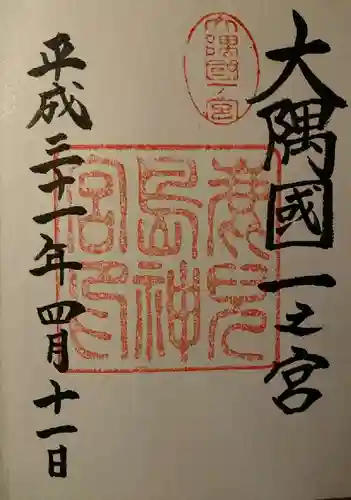 大隅國一之宮
大隅國一ノ宮
鹿児島神宮印
平成三十一年四月十一日